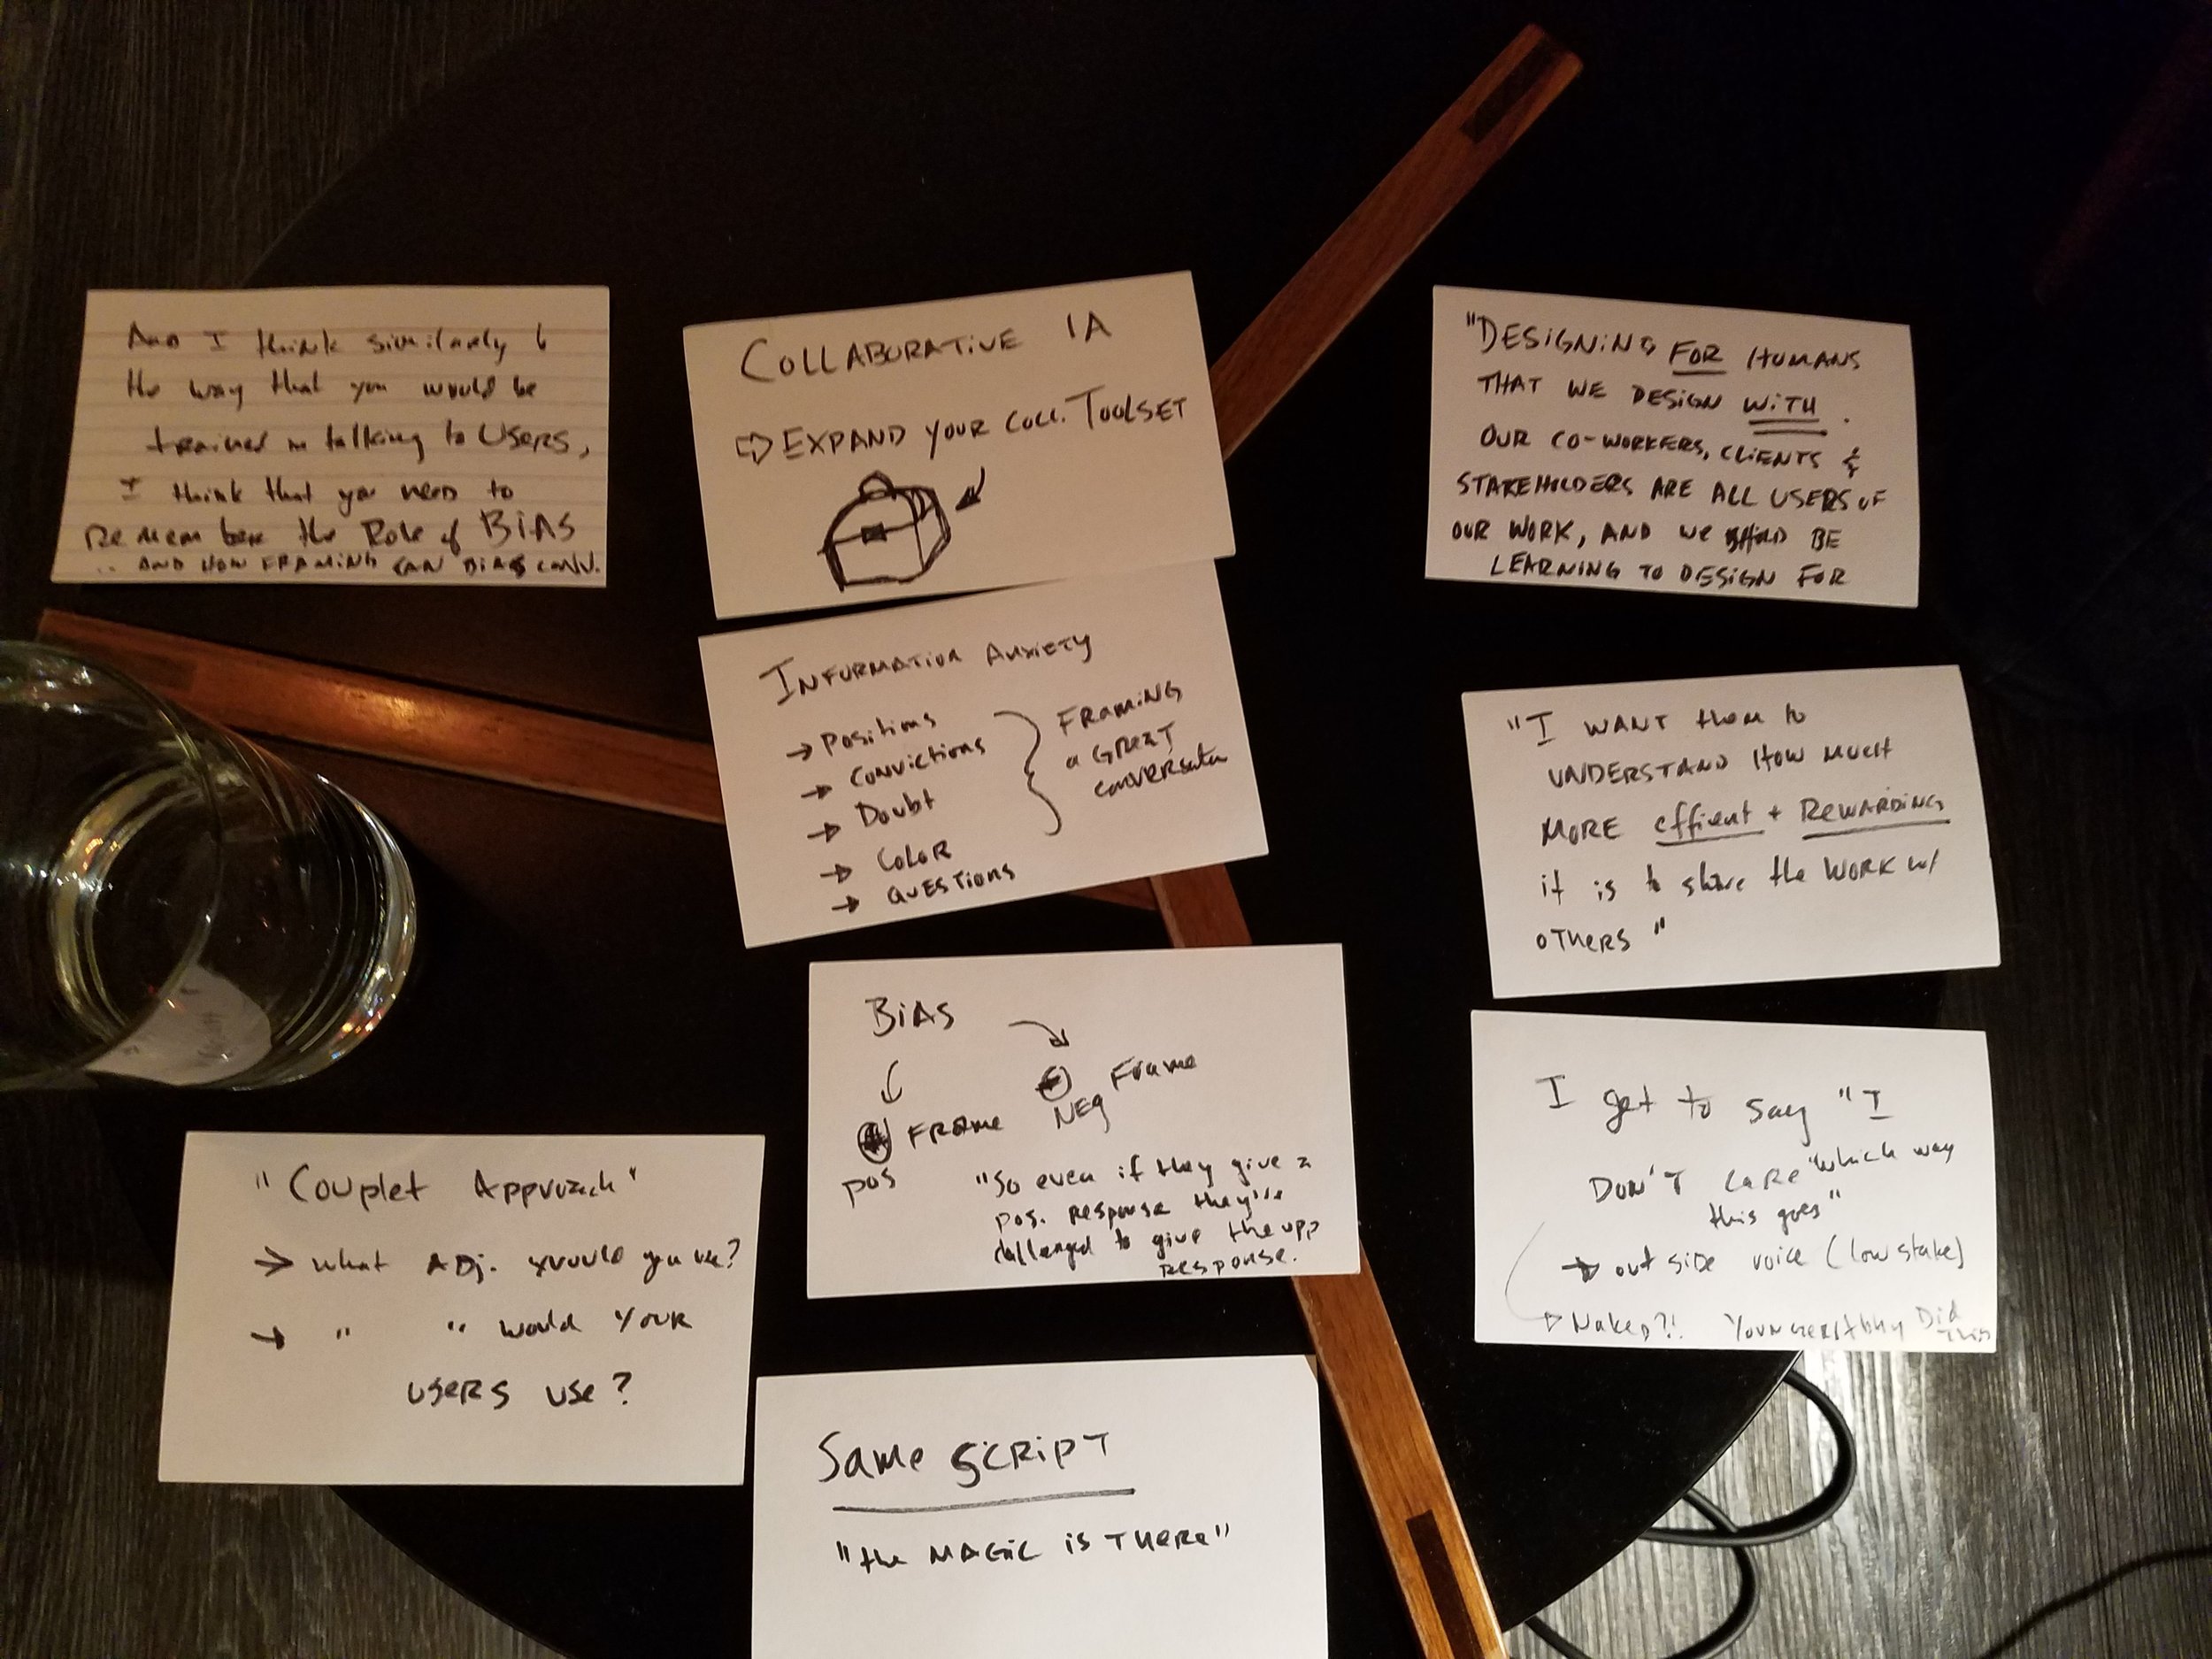 AND I think similarly to
the way that you would be
trained in talking to USERS,
I think that you need to
Remember the Role of BIAS
.. AND HOW FRAMING CAN BIAS CONV.
COLLABORATIVE IA
⇨ EXPAND YOUR COLL. TOOLSET
INFORMATION ANXIETY
→ Positions
→ Convictions
→ Doubt
→ COLOR
→ QUESTIONS
FRAMING
a GREAT
conversation
BIAS
Frame
NEG
FRAME
pos
"So even if they give a
pos. Response they're
challenged to give the opp
Response.
"Couplet Approach"
→ what ADJ. would you use?
→ " " would YOUR
USERS USE?
Same SCRIPT
"the MAGIC is THERE"
"DESIGNING FOR HUMANS
THAT WE DESIGN WITH.
OUR CO-WORKERS, CLIENTS &
STAKEHOLDERS ARE ALL USERS OF
OUR WORK, AND WE SHOULD BE
LEARNING TO DESIGN FOR
"I WANT them to
UNDERSTAND HOW MUCH
MORE effient + REWARDING
it is to share the WORK w/
OTHERS"
I get to say "I
DON'T CARE "which way
this goes"
→ outside voice (low stake)
→ Naked?! Did
This